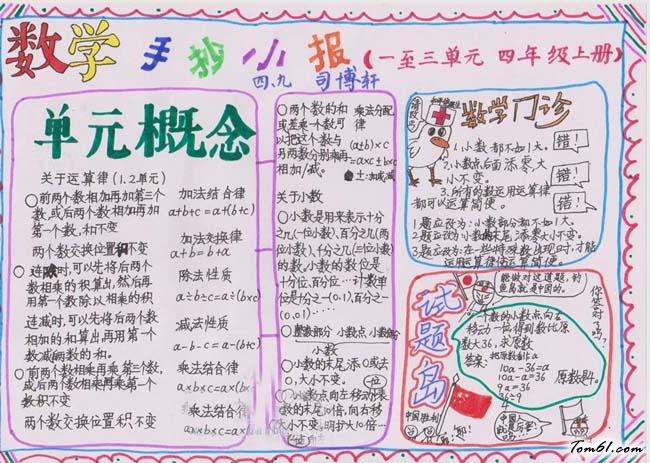 数学 手抄小报 (一至三单元 四年级上册)
四.九 司博轩
单元概念
关于运算律(1.2单元)
○前两个数相加再加第三个
数,或后两个数相加再加
第一个数,和不变
加法结合律
a+b+c=a+(b+c)
两个数交换位置和不变
加法交换律
a+b=b+a
○连除时,可以先将后两个
数相乘的积算出,然后再
用第一个数除以相乘的积
除法性质
a÷b÷c=a÷(b×c)
连减时,可以先将后两个数
相加的和算出再用第一个
数减两数的和.
减法性质
a-b-c=a-(b+c)
○前两个数相乘再乘第三个数,
或后两个数相乘再乘第一个
数积不变
乘法结合律
a×b×c=a×(b×
两个数交换位置积不变
乘法结合律
a×b×c=a×
○两个数的和
或差乘一个数可
以把这个数与
另两数分别乘再
相加/减.
乘法分配
律
(a±b)×c
=a×c±b×c
±=加或减
关于小数
○小数是用来表示十分
之几(一位小数),百分之几(两
位小数),千分之几(三位小数)
的数,小数的数位是
十分位,百分位…计数单
位是1分之一(0.1),百分之一
(0.01)……
整数部分 小数点,小数部分
小数
○小数的末尾添0或去
0,大小不变.
○小数点向左移动表
数的末尾10倍,向右移
大小不变.明扩大10倍…
数学门诊
1.小数都不如1大. 错!
2.小数点后面添零大
小不变. 错!
3.所有的数运用运算律
都可以运算简便. 错!
1题应改为:小数部分都不如1大.
2.题应改为小数的末尾添零大小不变.
3.题应改为:在一些特殊数出现时,才能
运用运算律使运算简便.
试题岛
能做对这道题,钓
鱼岛就是中国的.
你答对了吗?
一个数的小数点向右
移动一位得到数比原
数大36,求原数
答案:把原数看作a
10a-36=a
10a-a=36
9a=36
36÷9
原数是4.
中国胜利
中国人
Tom61.com